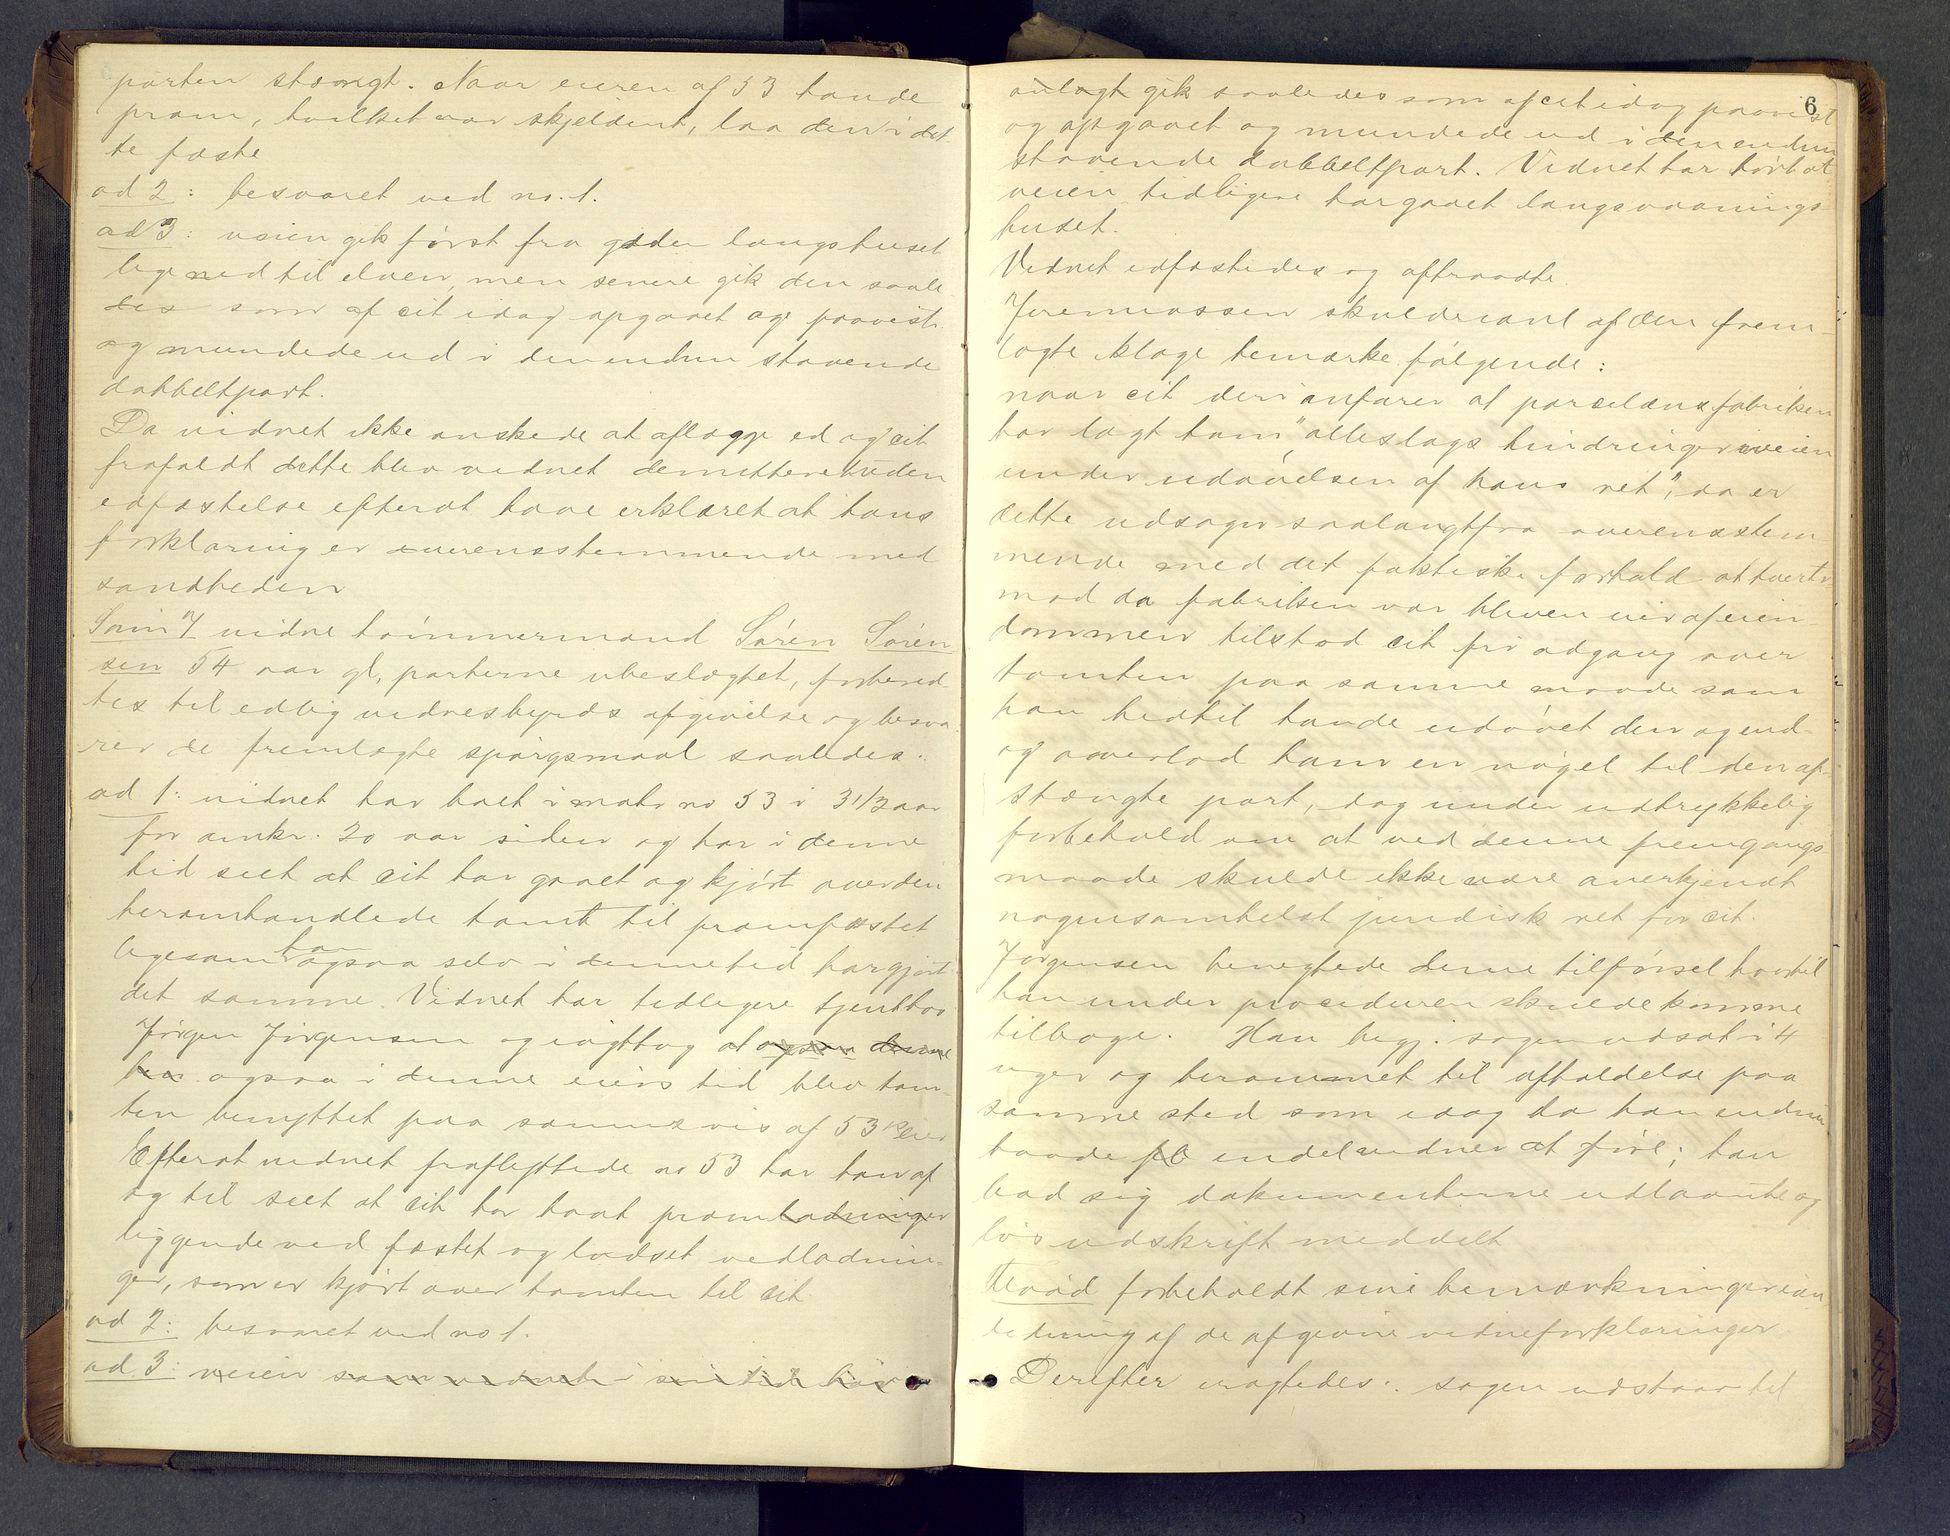 porten stængt. Naar eieren af 53 havde
pram, hvilket var skjeldent, laa den i det-
te fæste
ad 2: besvaret ved no. 1.
ad 3: veien gik först fra gader langs huset
lige ned til elven, men senere gik den saale
des som af cit idag opgaaet og paavist
og mundede ud i den endnu staaende
dobbeltport.
Da vidnet ikke ønskede at aflægge ed og cit
frafaldt dette blev vidnet demitteret uden
edfæstelse efterat have erklæret at hans
forklaring er overensstemmende med
sandheden
Som 7 vidne tömmermand Sören Sören
sen 54 aar gl, parterne ubeslægtet, forbered-
tes til edlig vidnesbyrds afgivelse og besva
rer de fremlagte spörgsmaal saaledes:
ad 1: vidnet har boet i matr no 53 i 3 1/2 aar
for omkr. 20 aar siden og har i denne
tid seet at cit har gaaet og kjört over den
heromhandlede tomt til pramfæstet
ligesom han ogsaa selv i denne tid har gjort
det samme. Vidnet har tidligere tjent hos
Jörgen Jörgensen og iagttog at ogsaa denne
han ogsaa i denne eiers tid blev tom-
ten benyttet paa samme vis af 53's eier
Efterat vidnet fraflyttede no 53 har han af
og til seet at cit har havt pramladninger
liggende ved fæstet og lodset vedladnin-
ger, som er kjört over tomten til cit
ad 2: besvaret ved no 1.
ad 3: veien som vidnet i sin tid
anlagt gik saaledes som af cit idag paavist
6
og opgaaet og mundede ud i den endnu
staaende dobbeltport. Vidnet har hört at
veien tidligere har gaaet langs vaanings-
huset.
Vidnet edfæstedes og aftraadte.
Jeremiassen skulde i anl af den frem-
lagte klage bemærke følgende:
naar cit deri anfører at porcelænsfabriken
har lagt ham "alleslags hindringer i veien
under udövelsen af hans ret", da er
dette udsagn saalangtfra overensstem-
mende med det faktiske forhold at tvert
mod da fabriken var bleven eier af eien-
dommen tilstod cit fri adgang over
tomten paa samme maade som
han hidtil havde udövet den og end-
og overlod ham en nögel til den af-
stængte port, dog under udtrykkelig
forbehold om at ved denne fremgangs-
maade skulde ikke være anerkjendt
nogensomhelst juridisk ret for cit.
Jörgensen benegtede denne tilförsel hvortil
han under proceduren skulde komme
tilbage. Han begj. sagen udsat i 4
uger og berammet til afholdelse paa
samme sted som idag da han endnu
havde en del vidner at före; han
bad sig dokumenterne udlaante og
lös udskrift meddelt
forbeholdt sine bemærkninger i an
ledning af de afgivne vidneforklaringer
Derefter eragtedes: sagen udstaar til